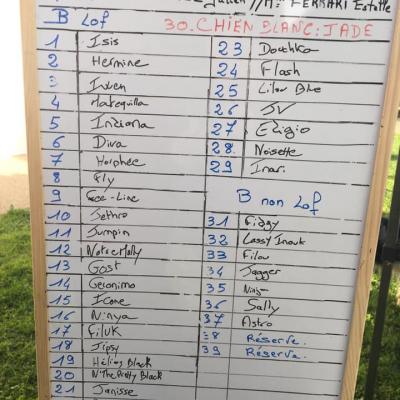 FERRARI Estelle
B Lof
30. CHIEN BLANC: JADE
1 Isis
2 Hermine
3
4
5 Indiana
6 Diva
7 Morphée
8 Fly
9 Gee-Line
10 Jethro
11 Jumpin
12
13 Gost
14 Geronimo
15 Icone
16 N'nya
17 Filuk
18 Jipsy
19 Hélios Black
20 N'The Pretty Black
21 Janisse
23 Douchka
24 Flash
25 Lilou Blue
26 JV
27 Eligio
28. Noisette
29 Inari
B non Lof
31 Fidgy
32 Lassy Inouk
33 Filou
34 Jagger
35
36 Sally
37 Astro
38 Réserve.
39 Réserve.